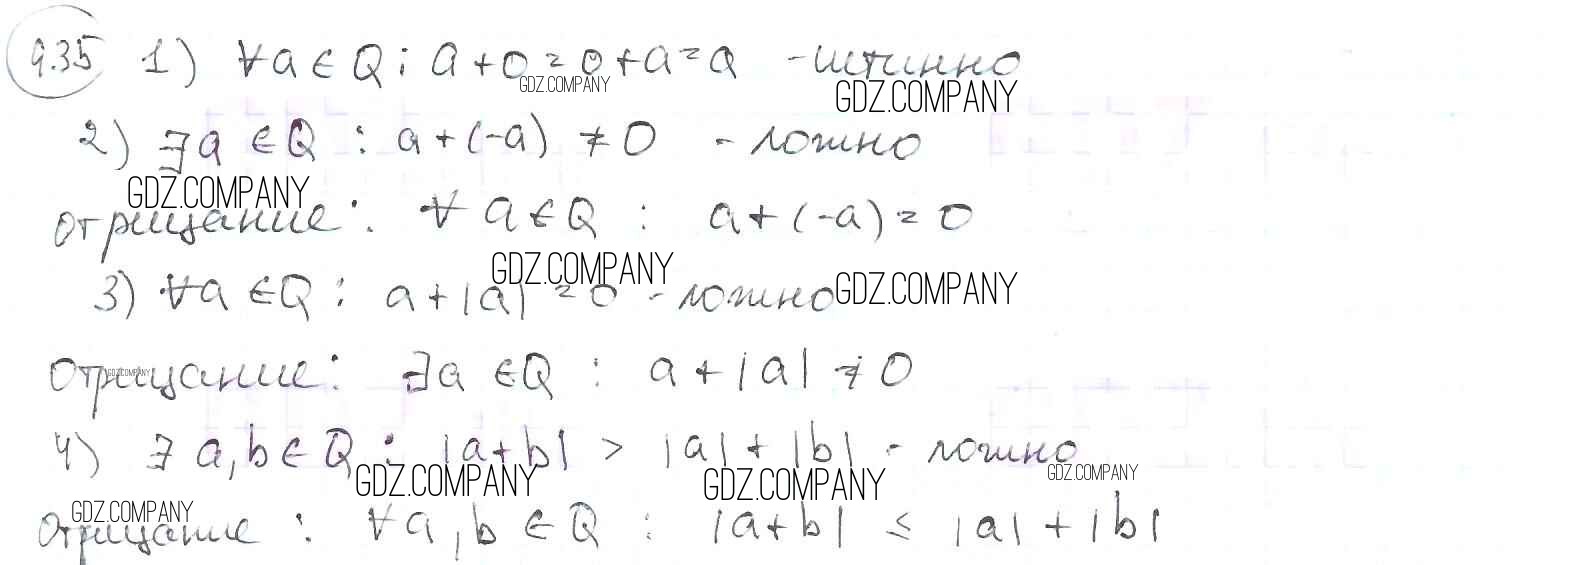 9.35 1) ∀a∈Q: a+0=0+a=a - истинно
GDZ.COMPANY GDZ.COMPANY
2) ∃a∈Q: a+(-a)≠0 - ложно
GDZ.COMPANY
отрицание: ∀a∈Q: a+(-a)=0
GDZ.COMPANY
3) ∀a∈Q: a+|a|=0 - ложно GDZ.COMPANY
Отрицание: ∃a∈Q: a+|a|≠0
GDZ.COMPANY
4) ∃a,b∈Q: |a+b| > |a|+|b| - ложно
GDZ.COMPANY GDZ.COMPANY GDZ.COMPANY
GDZ.COMPANY
Отрицание: ∀a,b∈Q: |a+b| ≤ |a|+|b|